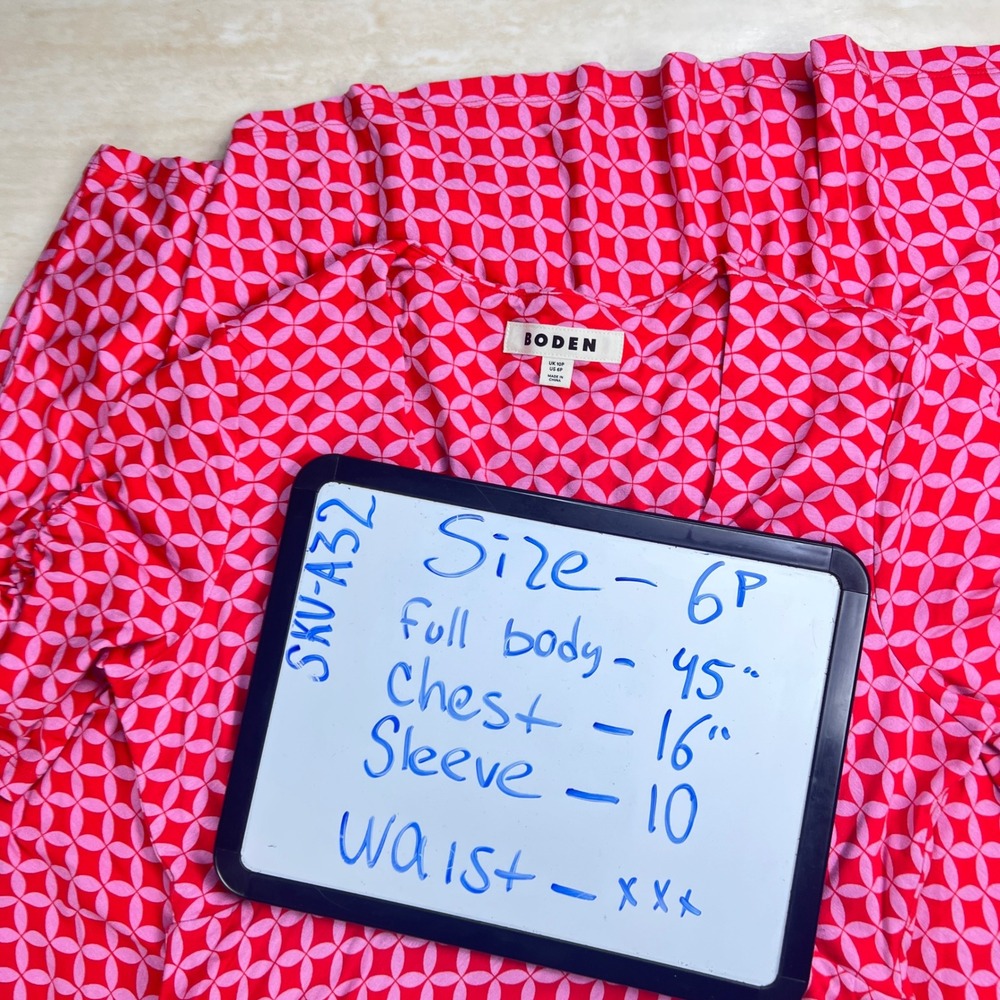 BODEN
UK 10P
US 6P
MADE IN
CHINA
SKU-A32
Size - 6P
Full body - 45"
Chest - 16"
Sleeve - 10
Waist - xxx